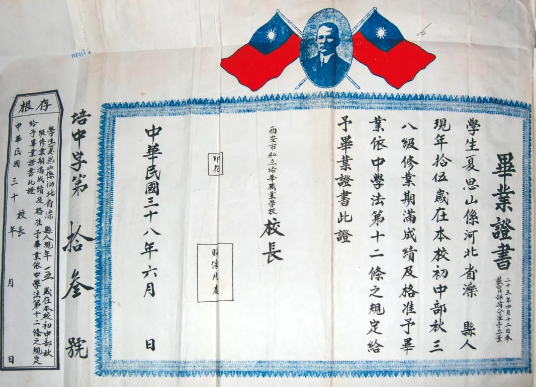 畢業證書
學生夏思山係河北省灤縣人
現年拾伍歲在本校初中部秋三
八級修業期滿成績及格准予畢
業依中學法第十二條之規定給
予畢業證書此證
西安市私立培華職業學校
校長
印花
中華民國三十八年六月 日
培中字第拾叁號
存根
學生夏思山係河北省灤縣人現年一五歲在本校初中部秋
級修業期滿成績及格准予畢業依中學法第十二條之規定
給予畢業證書此證
校長
中華民國三十 年 月 日